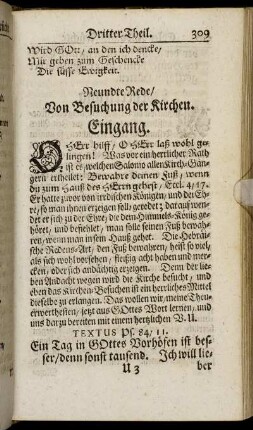 Dritter Theil. 309
Wird GOtt, an den ich dencke,
Mir geben zum Geschencke
Die süsse Ewigkeit.
Neundte Rede/
Von Besuchung der Kirchen.
Eingang.
OHErr hilff, O HErr laß wohl ge-
lingen! Was vor ein herrlicher Rath
ist es, welchen Salomo allen Kirch-Gän-
gern ertheilet: Bewahre deinen Fuß, wenn
du zum Hauß des HErrn gehest, Eccl. 4/17.
Er hatte zuvor von irrdischen Königen, und der Eh-
re, so man ihnen erzeigen soll geredet; darauf wen-
det er sich zu der Ehre, die dem Himmels-König ge-
höret, und befiehlet, man solle seinen Fuß bewah-
ren, wenn man in sein Hauß gehet. Die Hebräi-
sche Redens-Art, den Fuß bewahren, heist so viel,
als sich wohl vorsehen, fleißig acht haben und mer-
cken, oder sich andächtig erzeigen. Denn der lie-
ben Andacht wegen wird die Kirche besucht, und
eben das Kirchen-Besuchen ist ein herrliches Mittel
dieselbe zu erlangen. Das wollen wir, meine Theu-
erwerthesten, jetzt aus GOttes Wort lernen, und
uns darzu bereiten mit einem hertzlichen V. U.
TEXTUS Ps. 84/11.
Ein Tag in GOttes Vorhöfen ist bes-
ser/ denn sonst tausend. Ich will lie-
U 3 ber